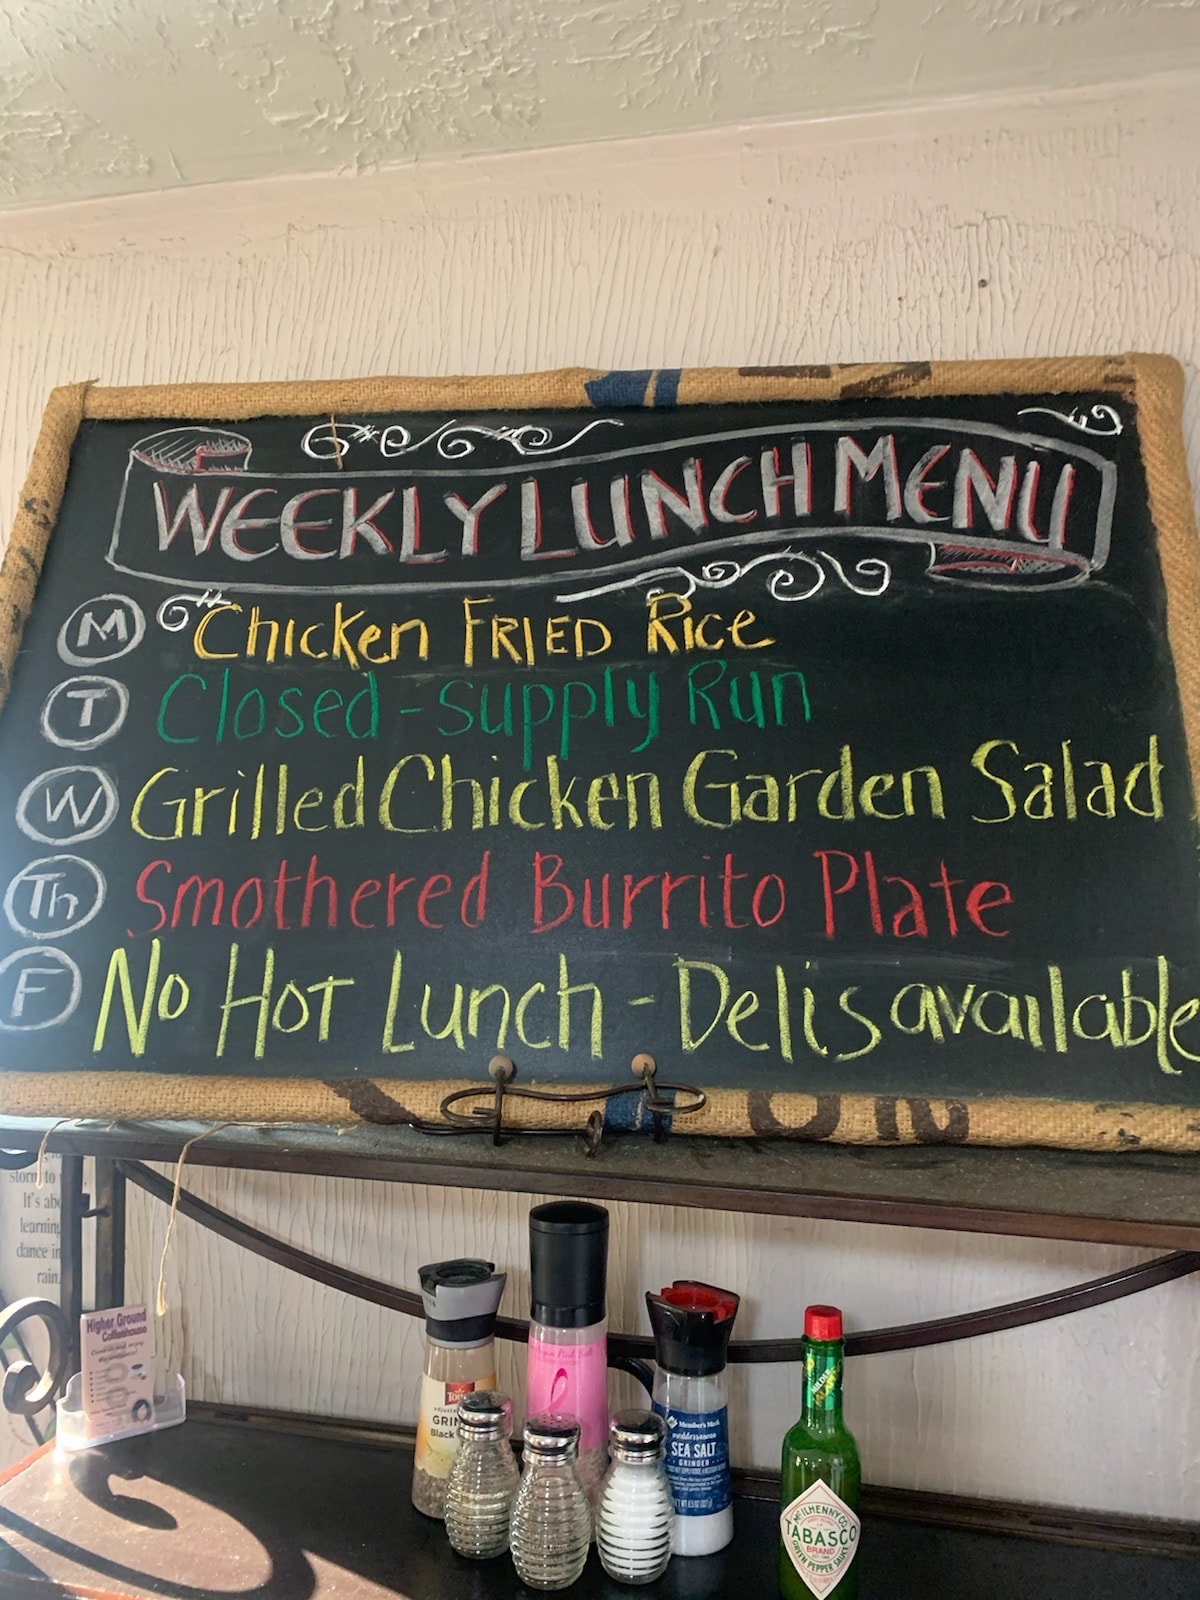 WEEKLY LUNCH MENU
M Chicken FRIED Rice
T Closed - supply Run
W Grilled Chicken Garden Salad
Th Smothered Burrito Plate
F No Hot Lunch - Deli is available
It's
learning
dance in
rain.
Higher Ground
Coffeehouse
GRIN
Black
Member's Mark
mediterranean
SEA SALT
GRINDER
MILDER
McILHENNY CO.
TABASCO
BRAND
GREEN PEPPER SAUCE